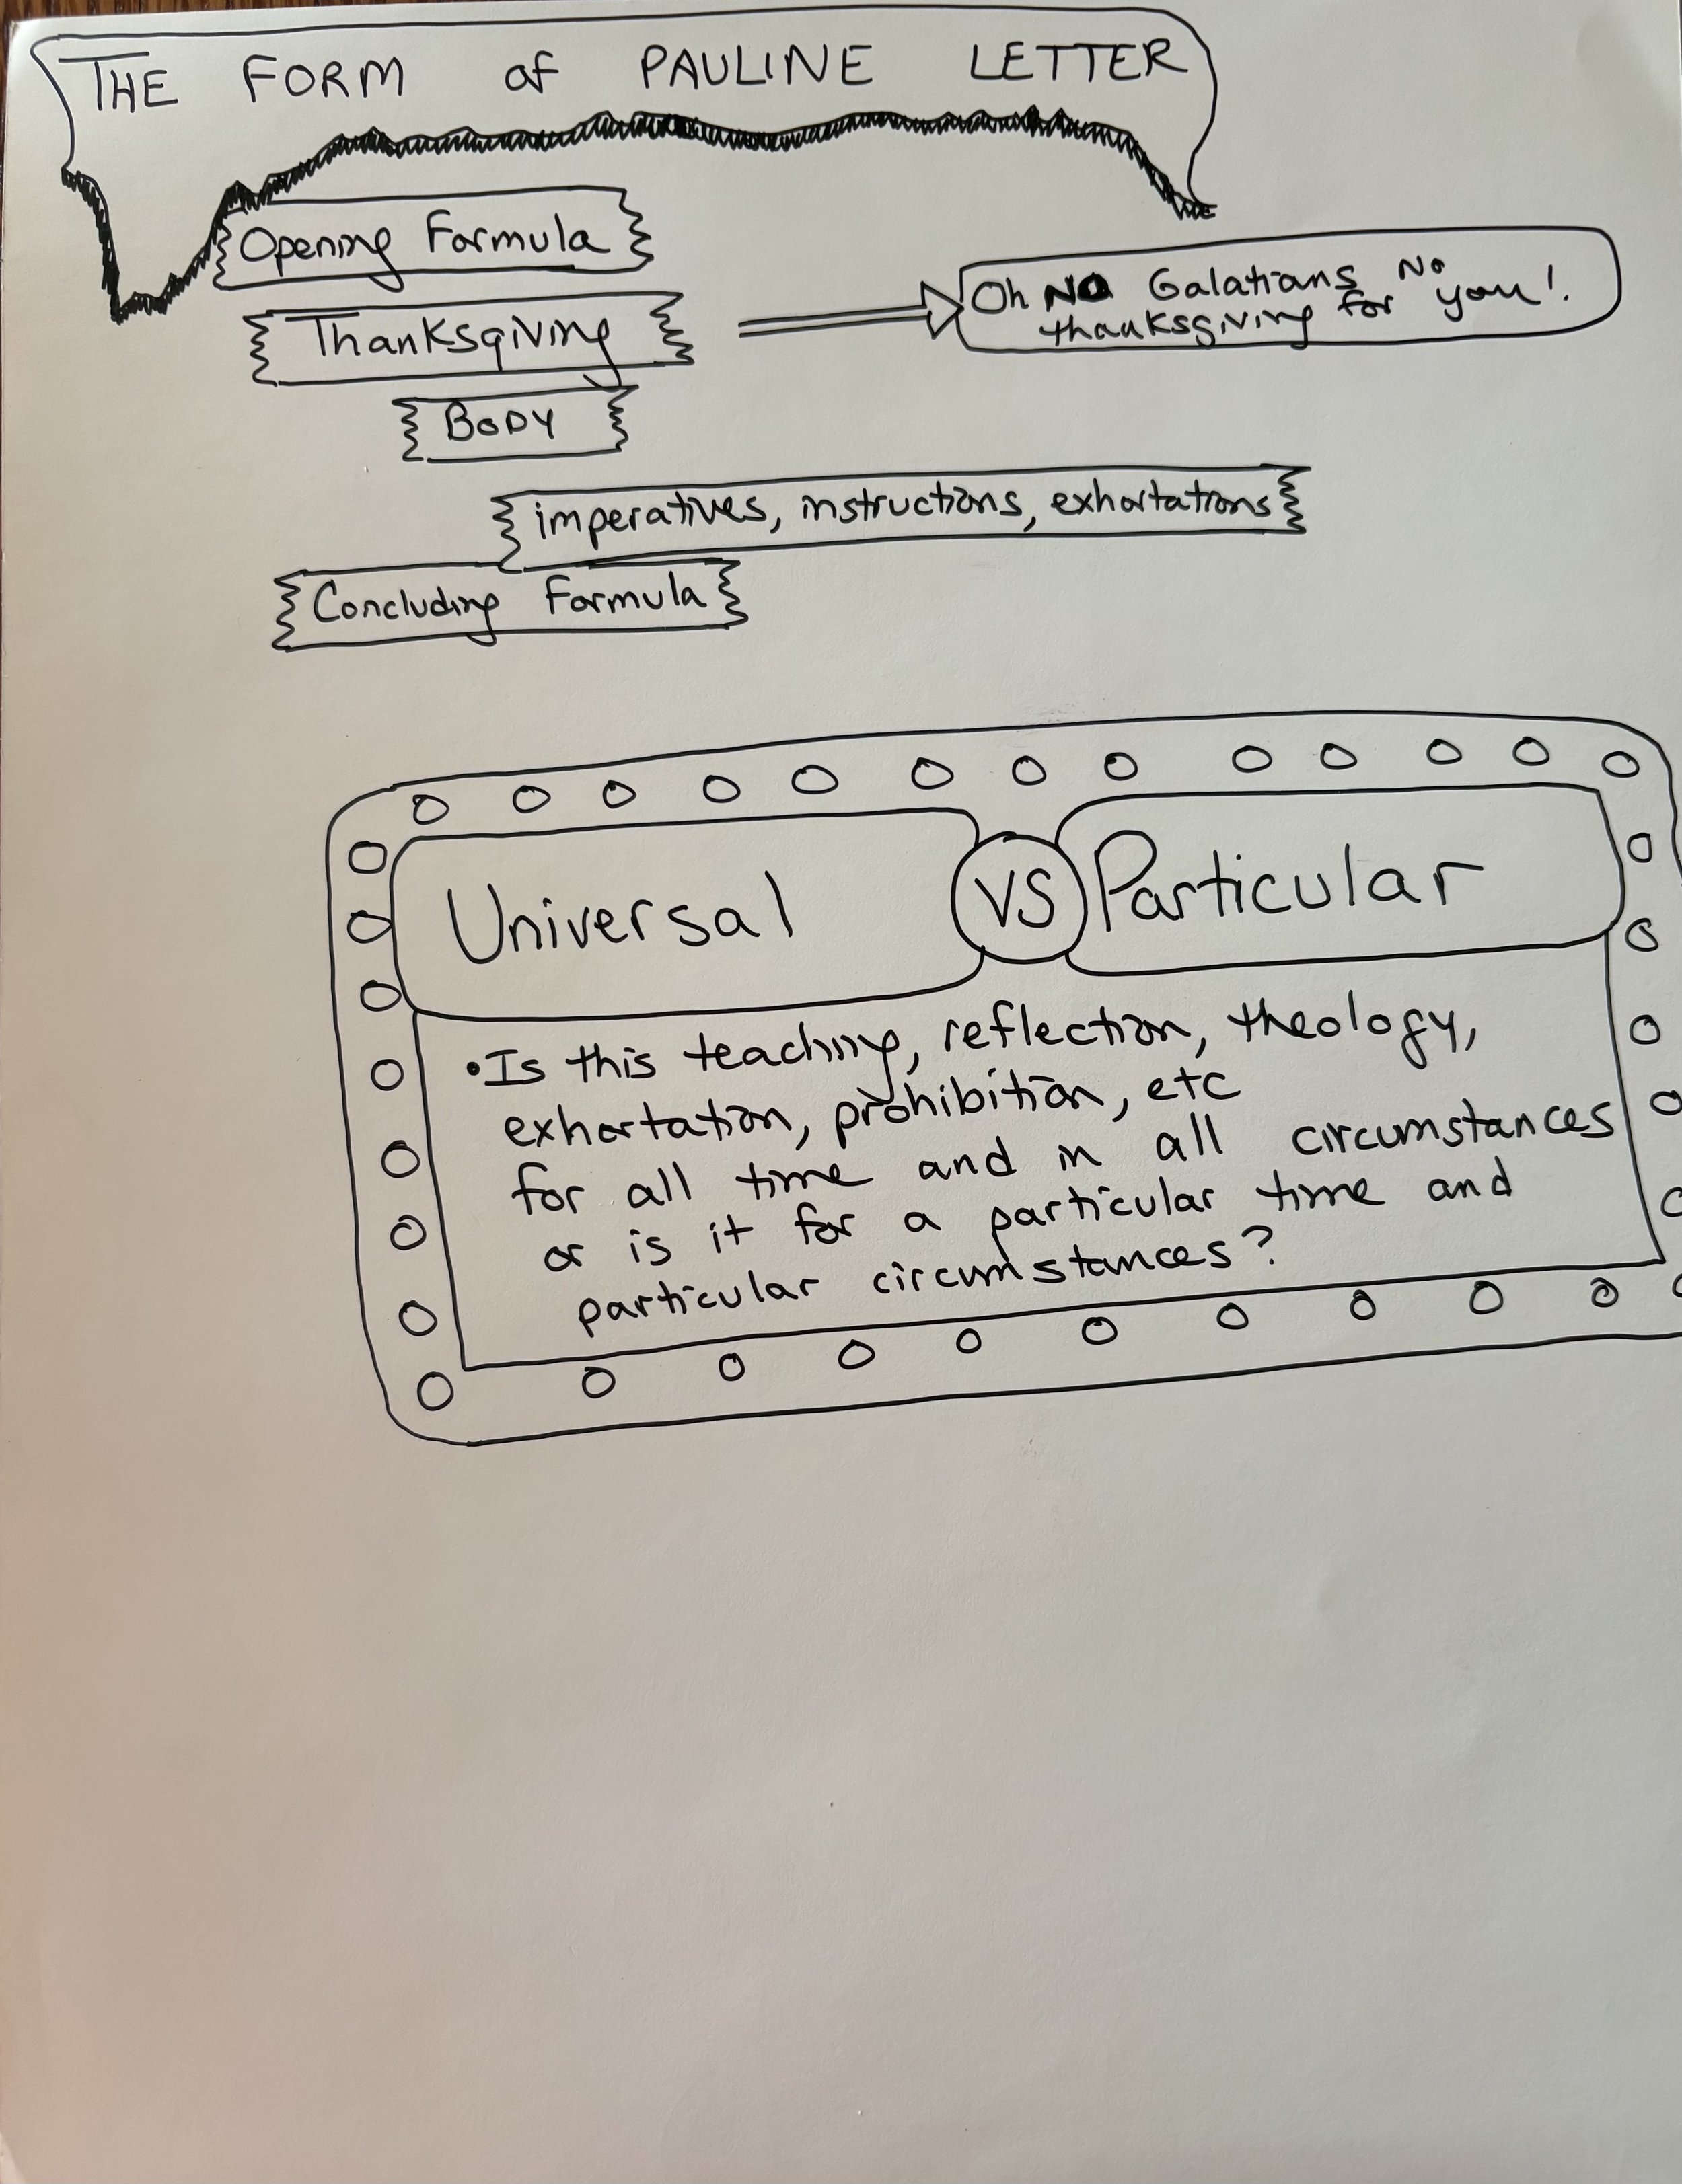 THE FORM of PAULINE LETTER
Opening Formula
Thanksgiving
Oh NO Galatians No
thanksgiving for you!
BODY
imperatives, instructions, exhortations
Concluding Formula
Universal VS Particular
•Is this teaching, reflection, theology,
exhortation, prohibition, etc
for all time and in all circumstances
or is it for a particular time and
particular circumstances?